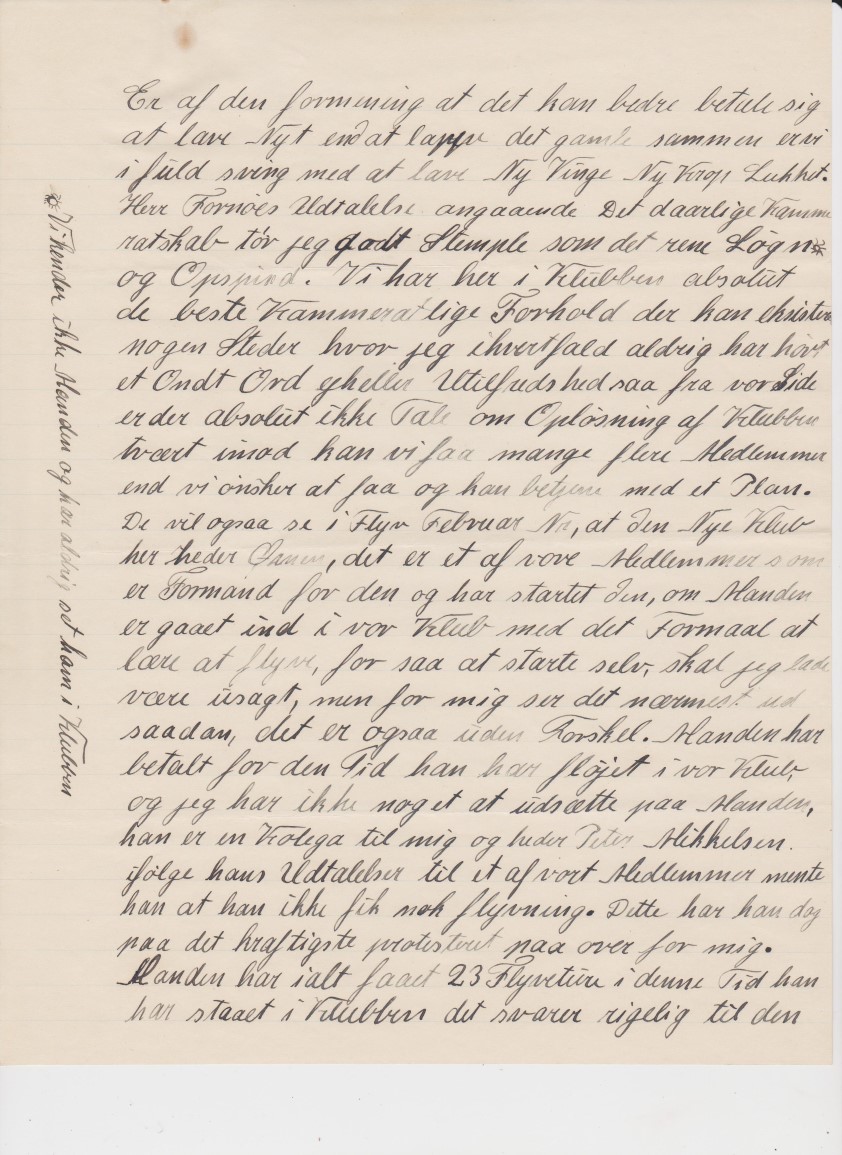 Er af den formening at det kan bedre betale sig
at lave Nyt end at lappe det gamle sammen er vi
i fuld sving med at lave Ny Vinge Ny Krop Lukket.
Herr Fornøes Udtalelse angaaende Det daarlige Kamme
ratskab tør jeg godt Stemple som det rene Løgn *
og Opspind. Vi har her i Klubben absolut
de beste Kammeratlige Forhold der kan eksistere
nogen Steder hvor jeg ihvertfald aldrig har hört
et Ondt Ord gheller Utilfudshed saa fra vor Side
er der absolut ikke Tale om Opløsning af Klubben
tvært imod kan vi faa mange flere Medlemmer
end vi ønsker at faa og kan betjene med et Plan.
De vil ogsaa se i Flyv Februar Nr, at den Nye Klub
her heder Ørnen, det er et af vore Medlemmer som
er Formand for den og har startet den, om Manden
er gaaet ind i vor Klub med det Formaal at
lære at flyve, for saa at starte selv, skal jeg lade
være usagt, men for mig ser det nærmest ud
saadan, det er ogsaa uden Forskel. Manden har
betalt for den Tid han har fløjet i vor Klub,
og jeg har ikke noget at udsætte paa Manden,
han er en Kolega til mig og heder Peter Mikkelsen.
ifølge hans Udtalelser til et af vort Medlemmer mente
han at han ikke fik nok flyvning. Dette har han dog
paa det kraftigste protesteret paa over for mig.
Manden har ialt faaet 23 Flyveture i denne Tid han
har staaet i Klubben det svarer rigelig til den
* Vi kender ikke Manden og har aldrig set ham i Klubben